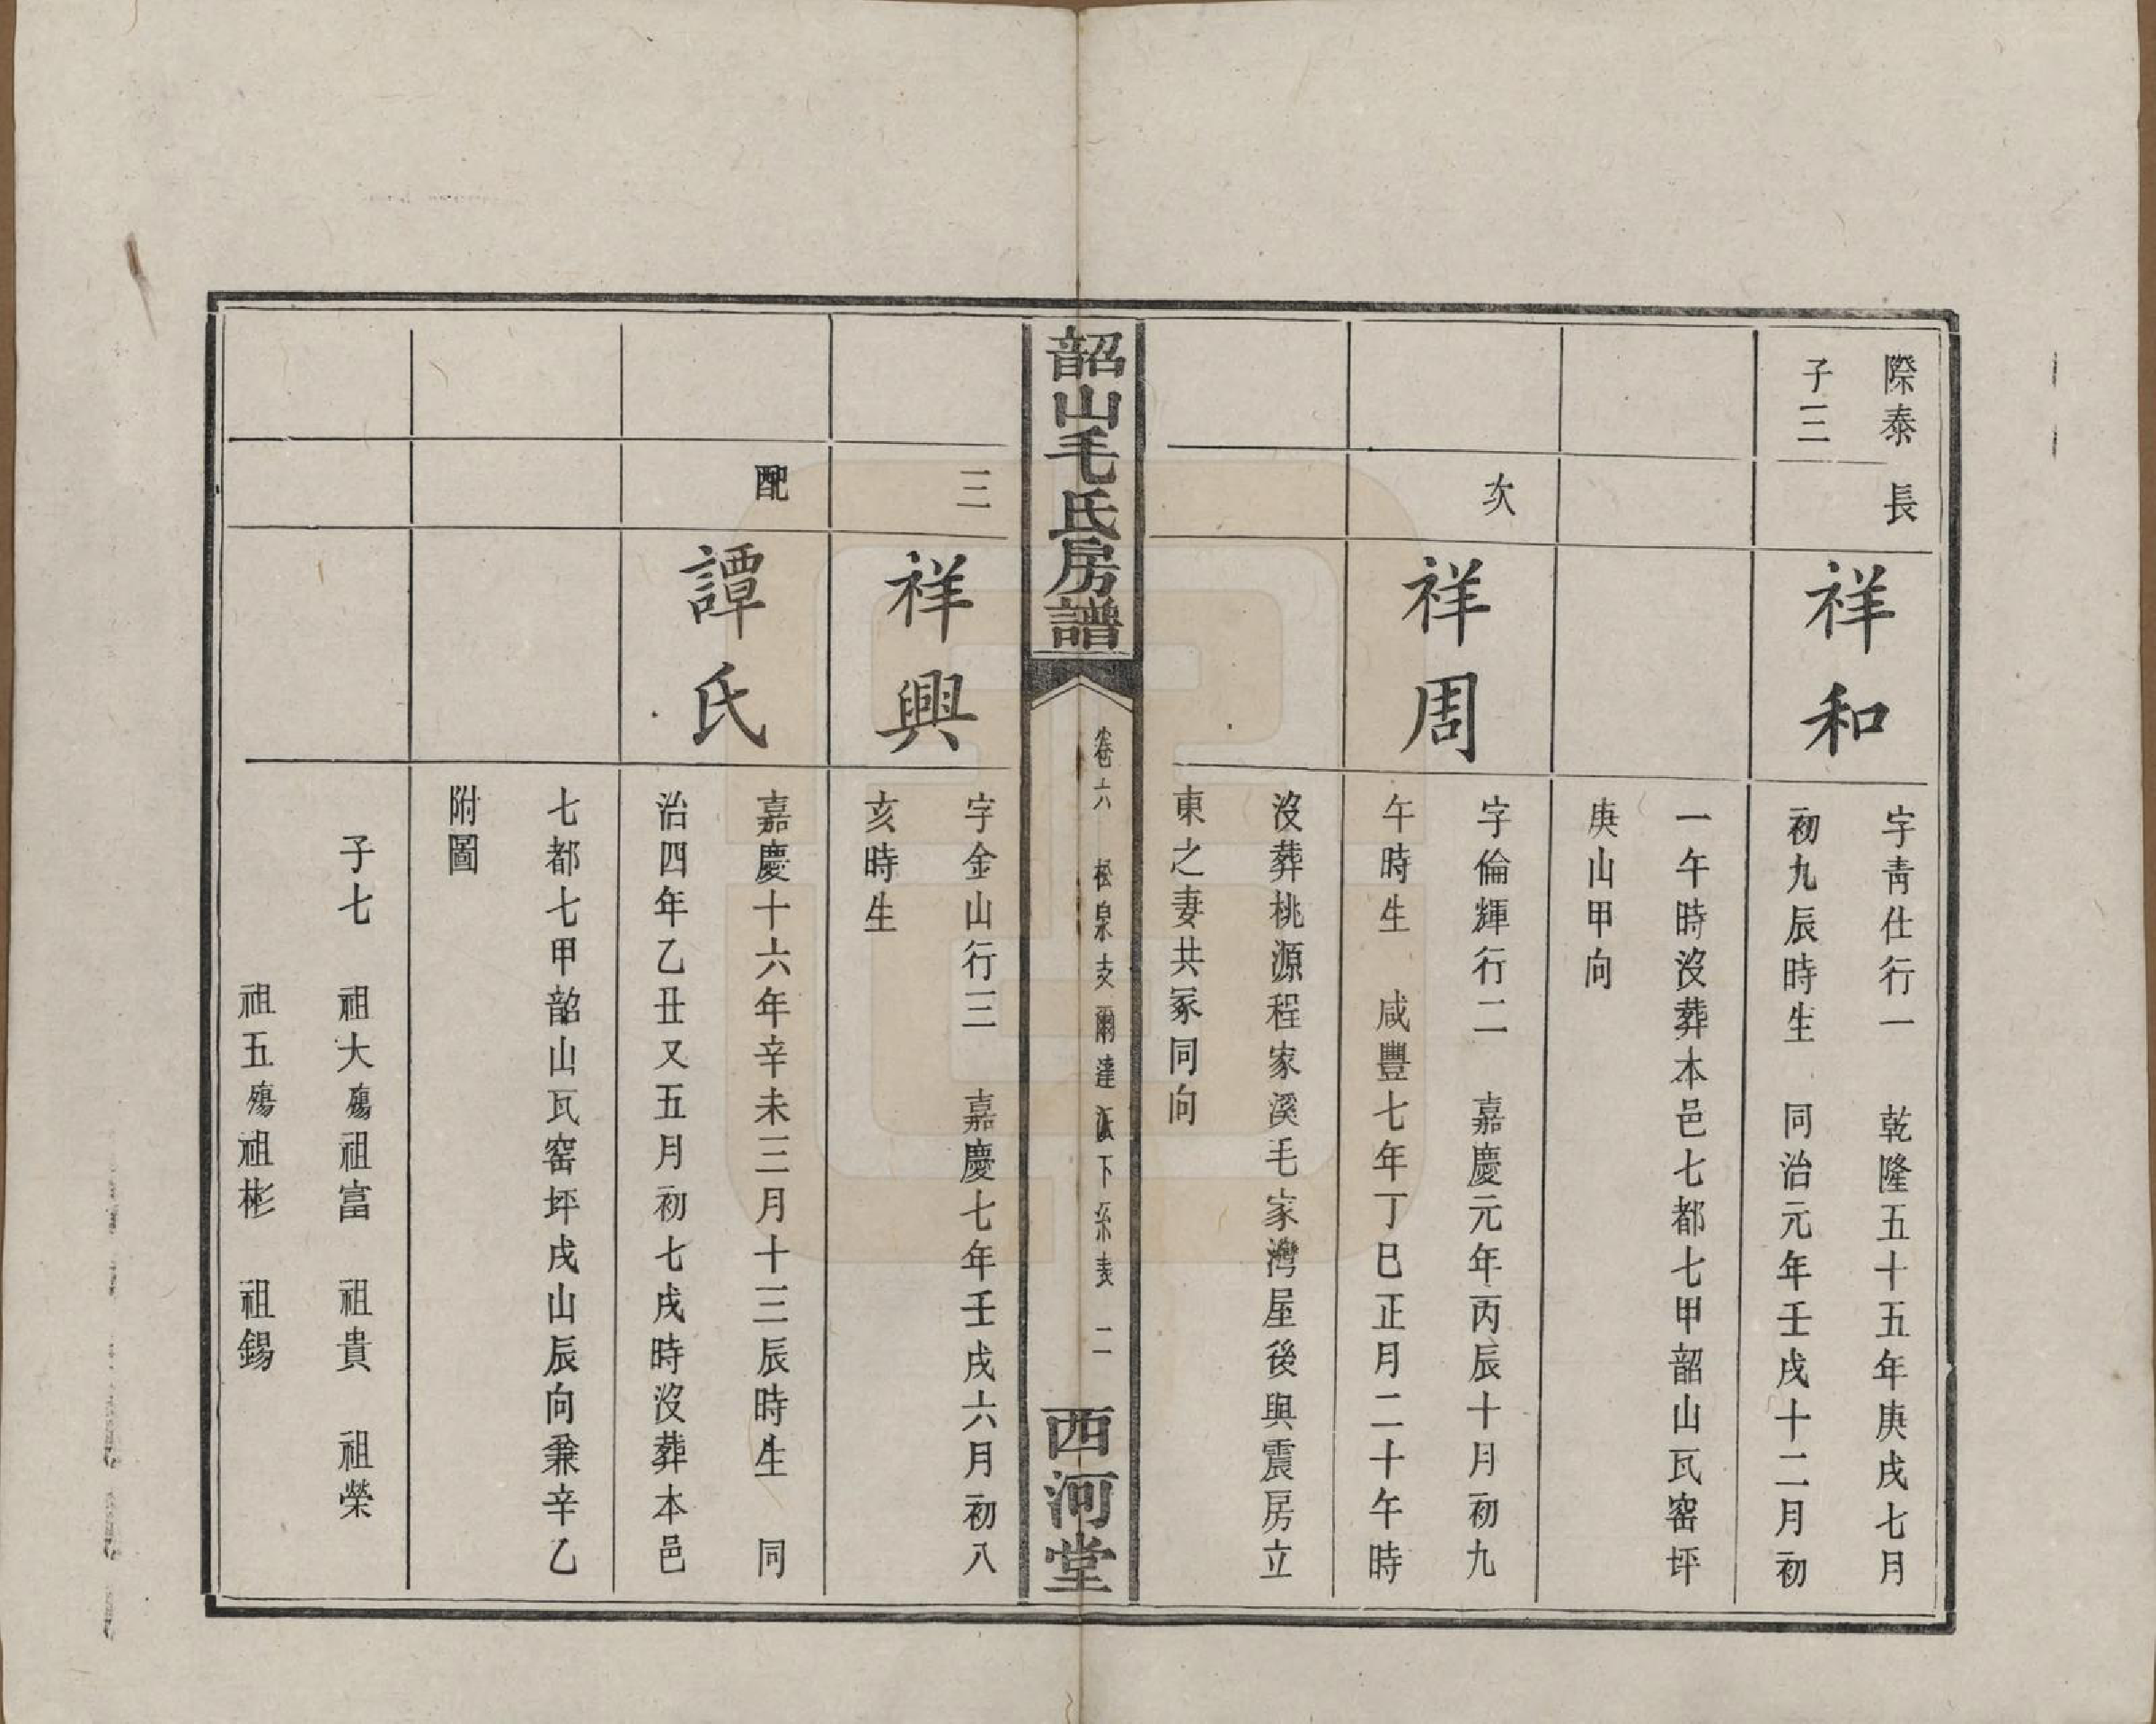 際泰
子三
長
祥和
字青仕行一　乾隆五十五年庚戌七月
初九辰時生　同治元年壬戌十二月初
一午時沒葬本邑七都七甲韶山瓦窑坪
庚山甲向
次
祥周
字倫輝行二　嘉慶元年丙辰十月初九
午時生　咸豐七年丁巳正月二十午時
沒葬桃源程家溪毛家灣屋後與震房立
東之妻共冢同向
韶山毛氏房譜
卷六　松泉支爾達派下系表　二
西河堂
三
祥興
字金山行三　嘉慶七年壬戌六月初八
亥時生
配
譚氏
嘉慶十六年辛未三月十三辰時生　同
治四年乙丑又五月初七戌時沒葬本邑
七都七甲韶山瓦窑坪戌山辰向兼辛乙
附圖
子七　祖大殤祖富　祖貴　祖榮
祖五殤祖彬　祖錫